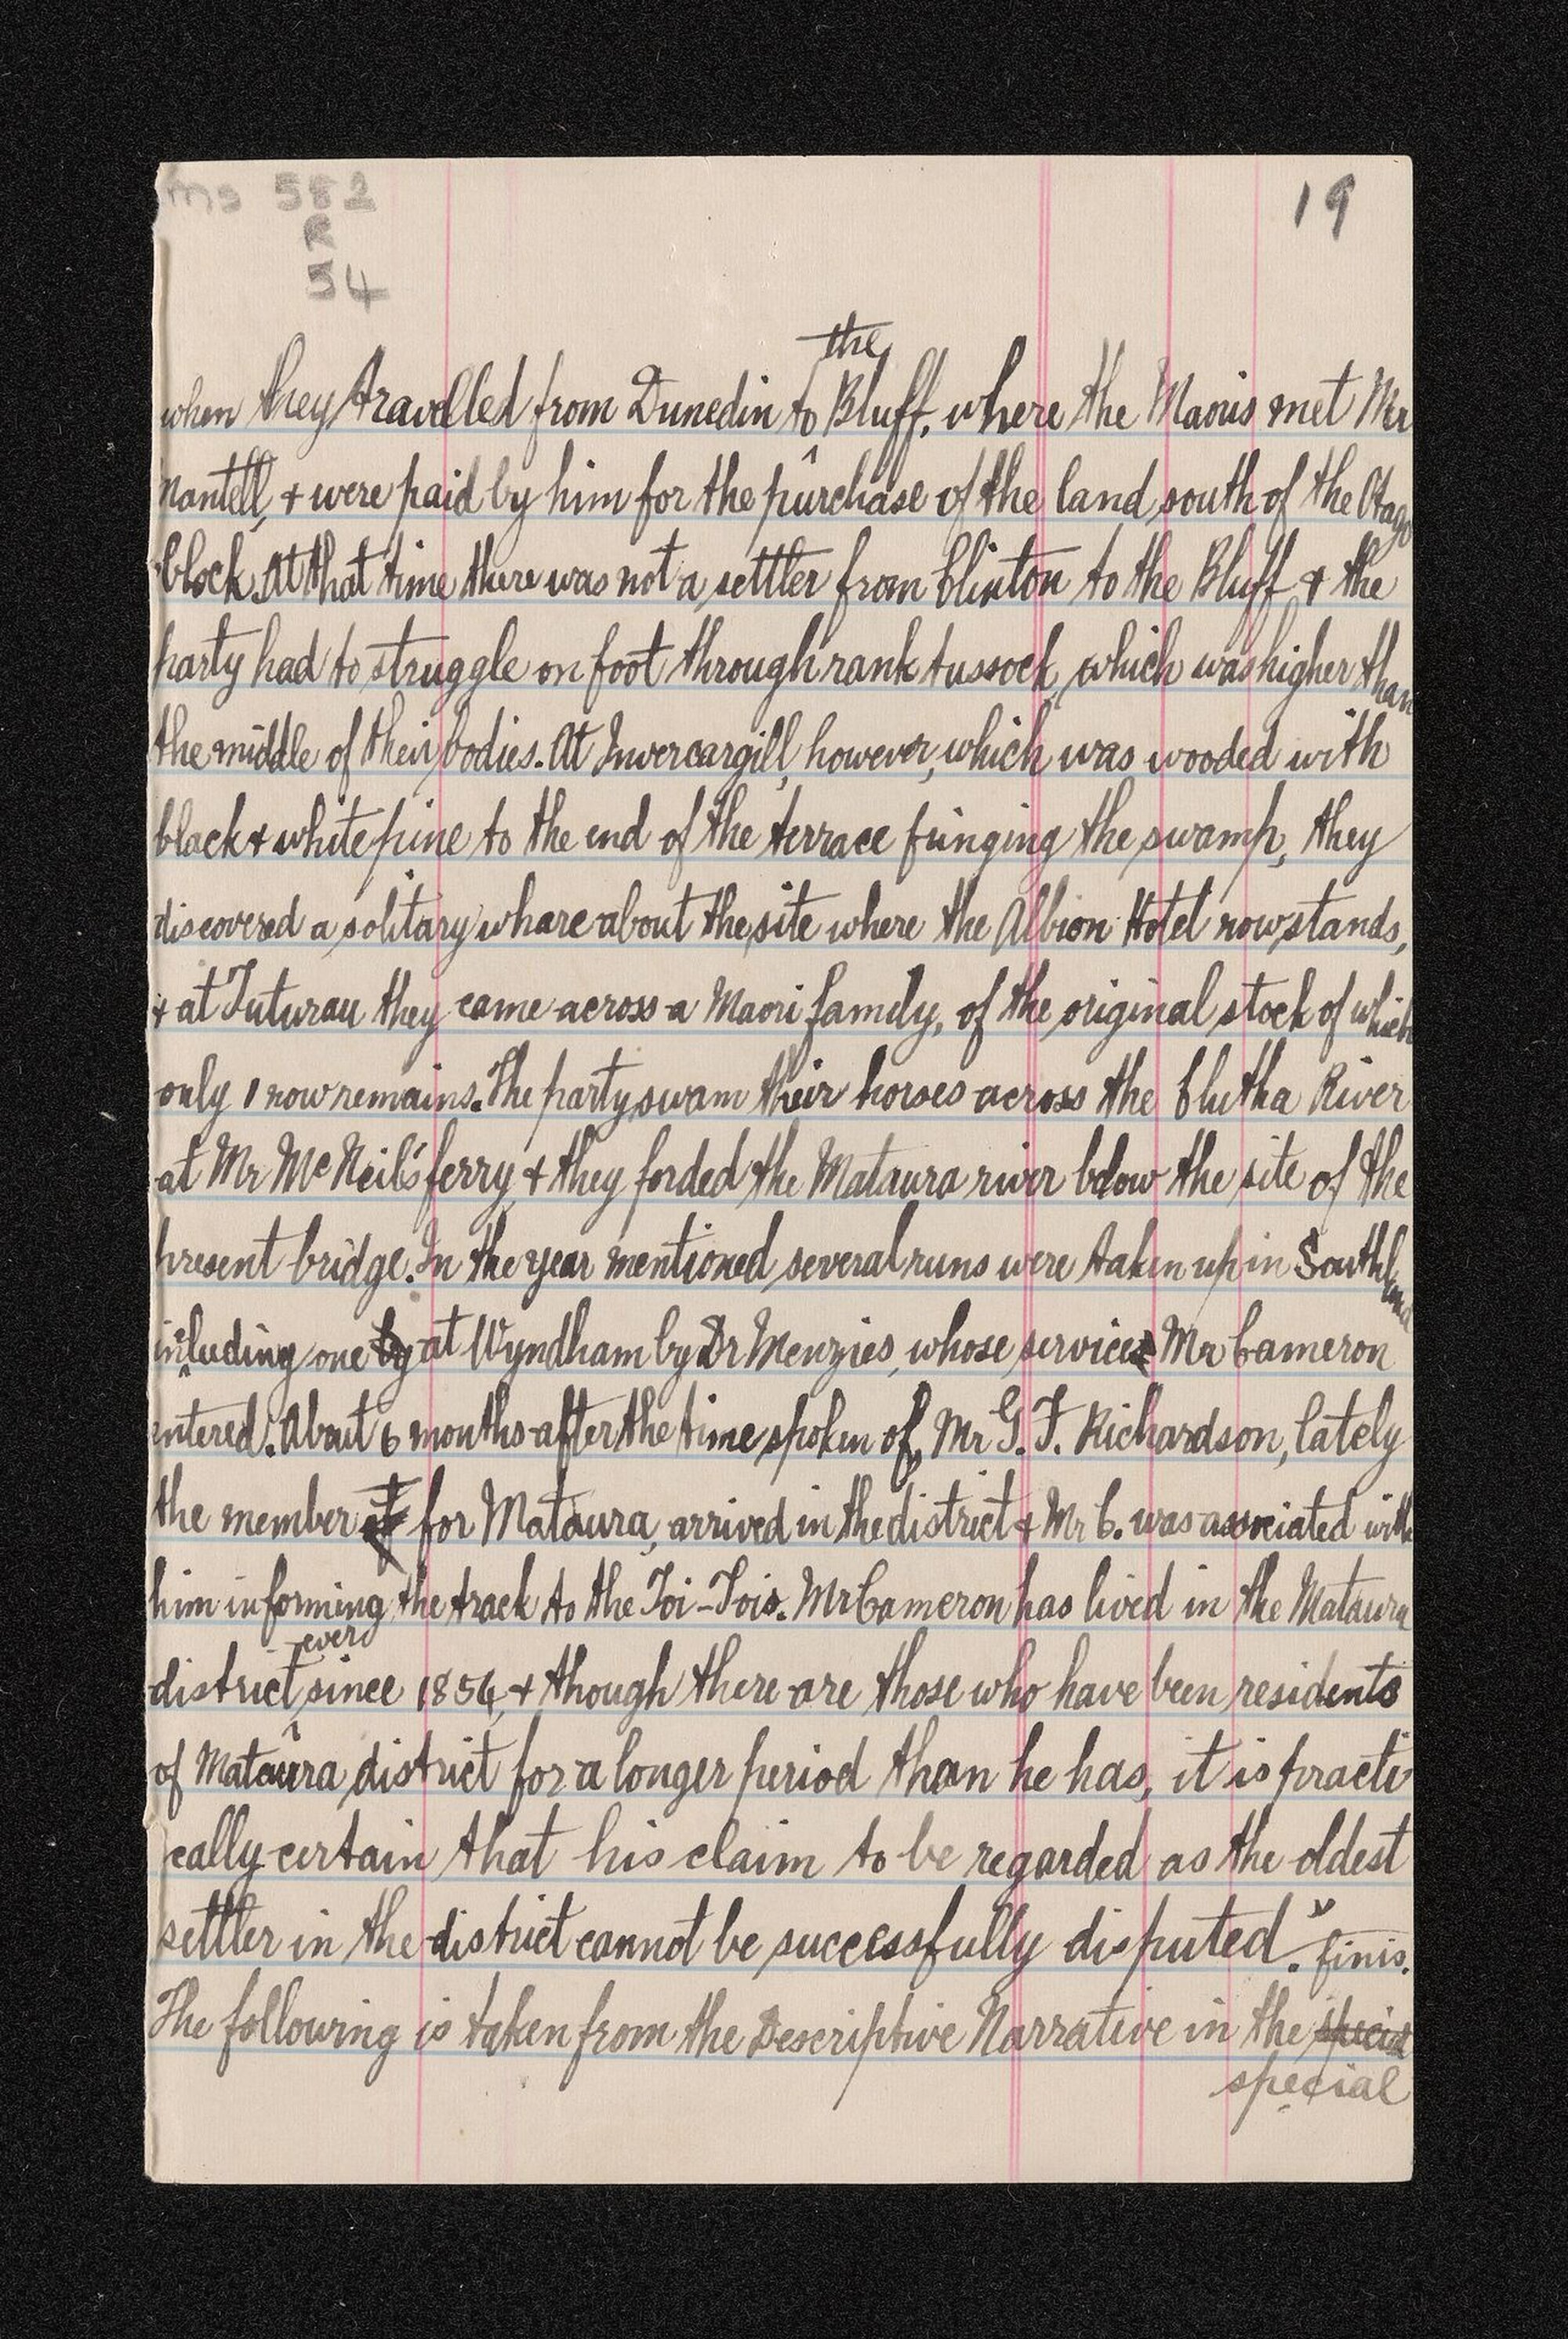 ms 582
R
54
19
the
when they travelled from Dunedin to Bluff, where the Maoris met Mr
Mantell, + were paid by him for the purchase of the land south of the Otago
block. At that time there was not a settler from Clinton to the Bluff + the
party had to struggle on foot through rank tussock, which was higher than
the middle of their bodies. At Invercargill, however, which was wooded with
black + white pine to the end of the terrace fringing the swamp, they
discovered a solitary whare about the site where the Albion Hotel now stands,
+ at Tuturau they came across a Maori family, of the original stock of which
only 1 now remains. The party swam their horses across the Clutha River
at Mr McNeil's ferry, + they forded the Mataura river below the site of the
present bridge. In the year mentioned several runs were taken up in Southland
including one by at Wyndham by Dr Menzies, whose services Mr Cameron
entered. About 6 months after the time spoken of, Mr G. F. Richardson, lately
the member of for Mataura, arrived in the district + Mr C. was associated with
him in forming the track to the Toi-Tois. Mr Cameron has lived in the Mataura
ever
district since 1854, + though there are those who have been residents
of Mataura district for a longer period than he has, it is practi
cally certain that his claim to be regarded as the oldest
settler in the district cannot be successfully disputed." finis.
The following is taken from the Descriptive Narrative in the special
special